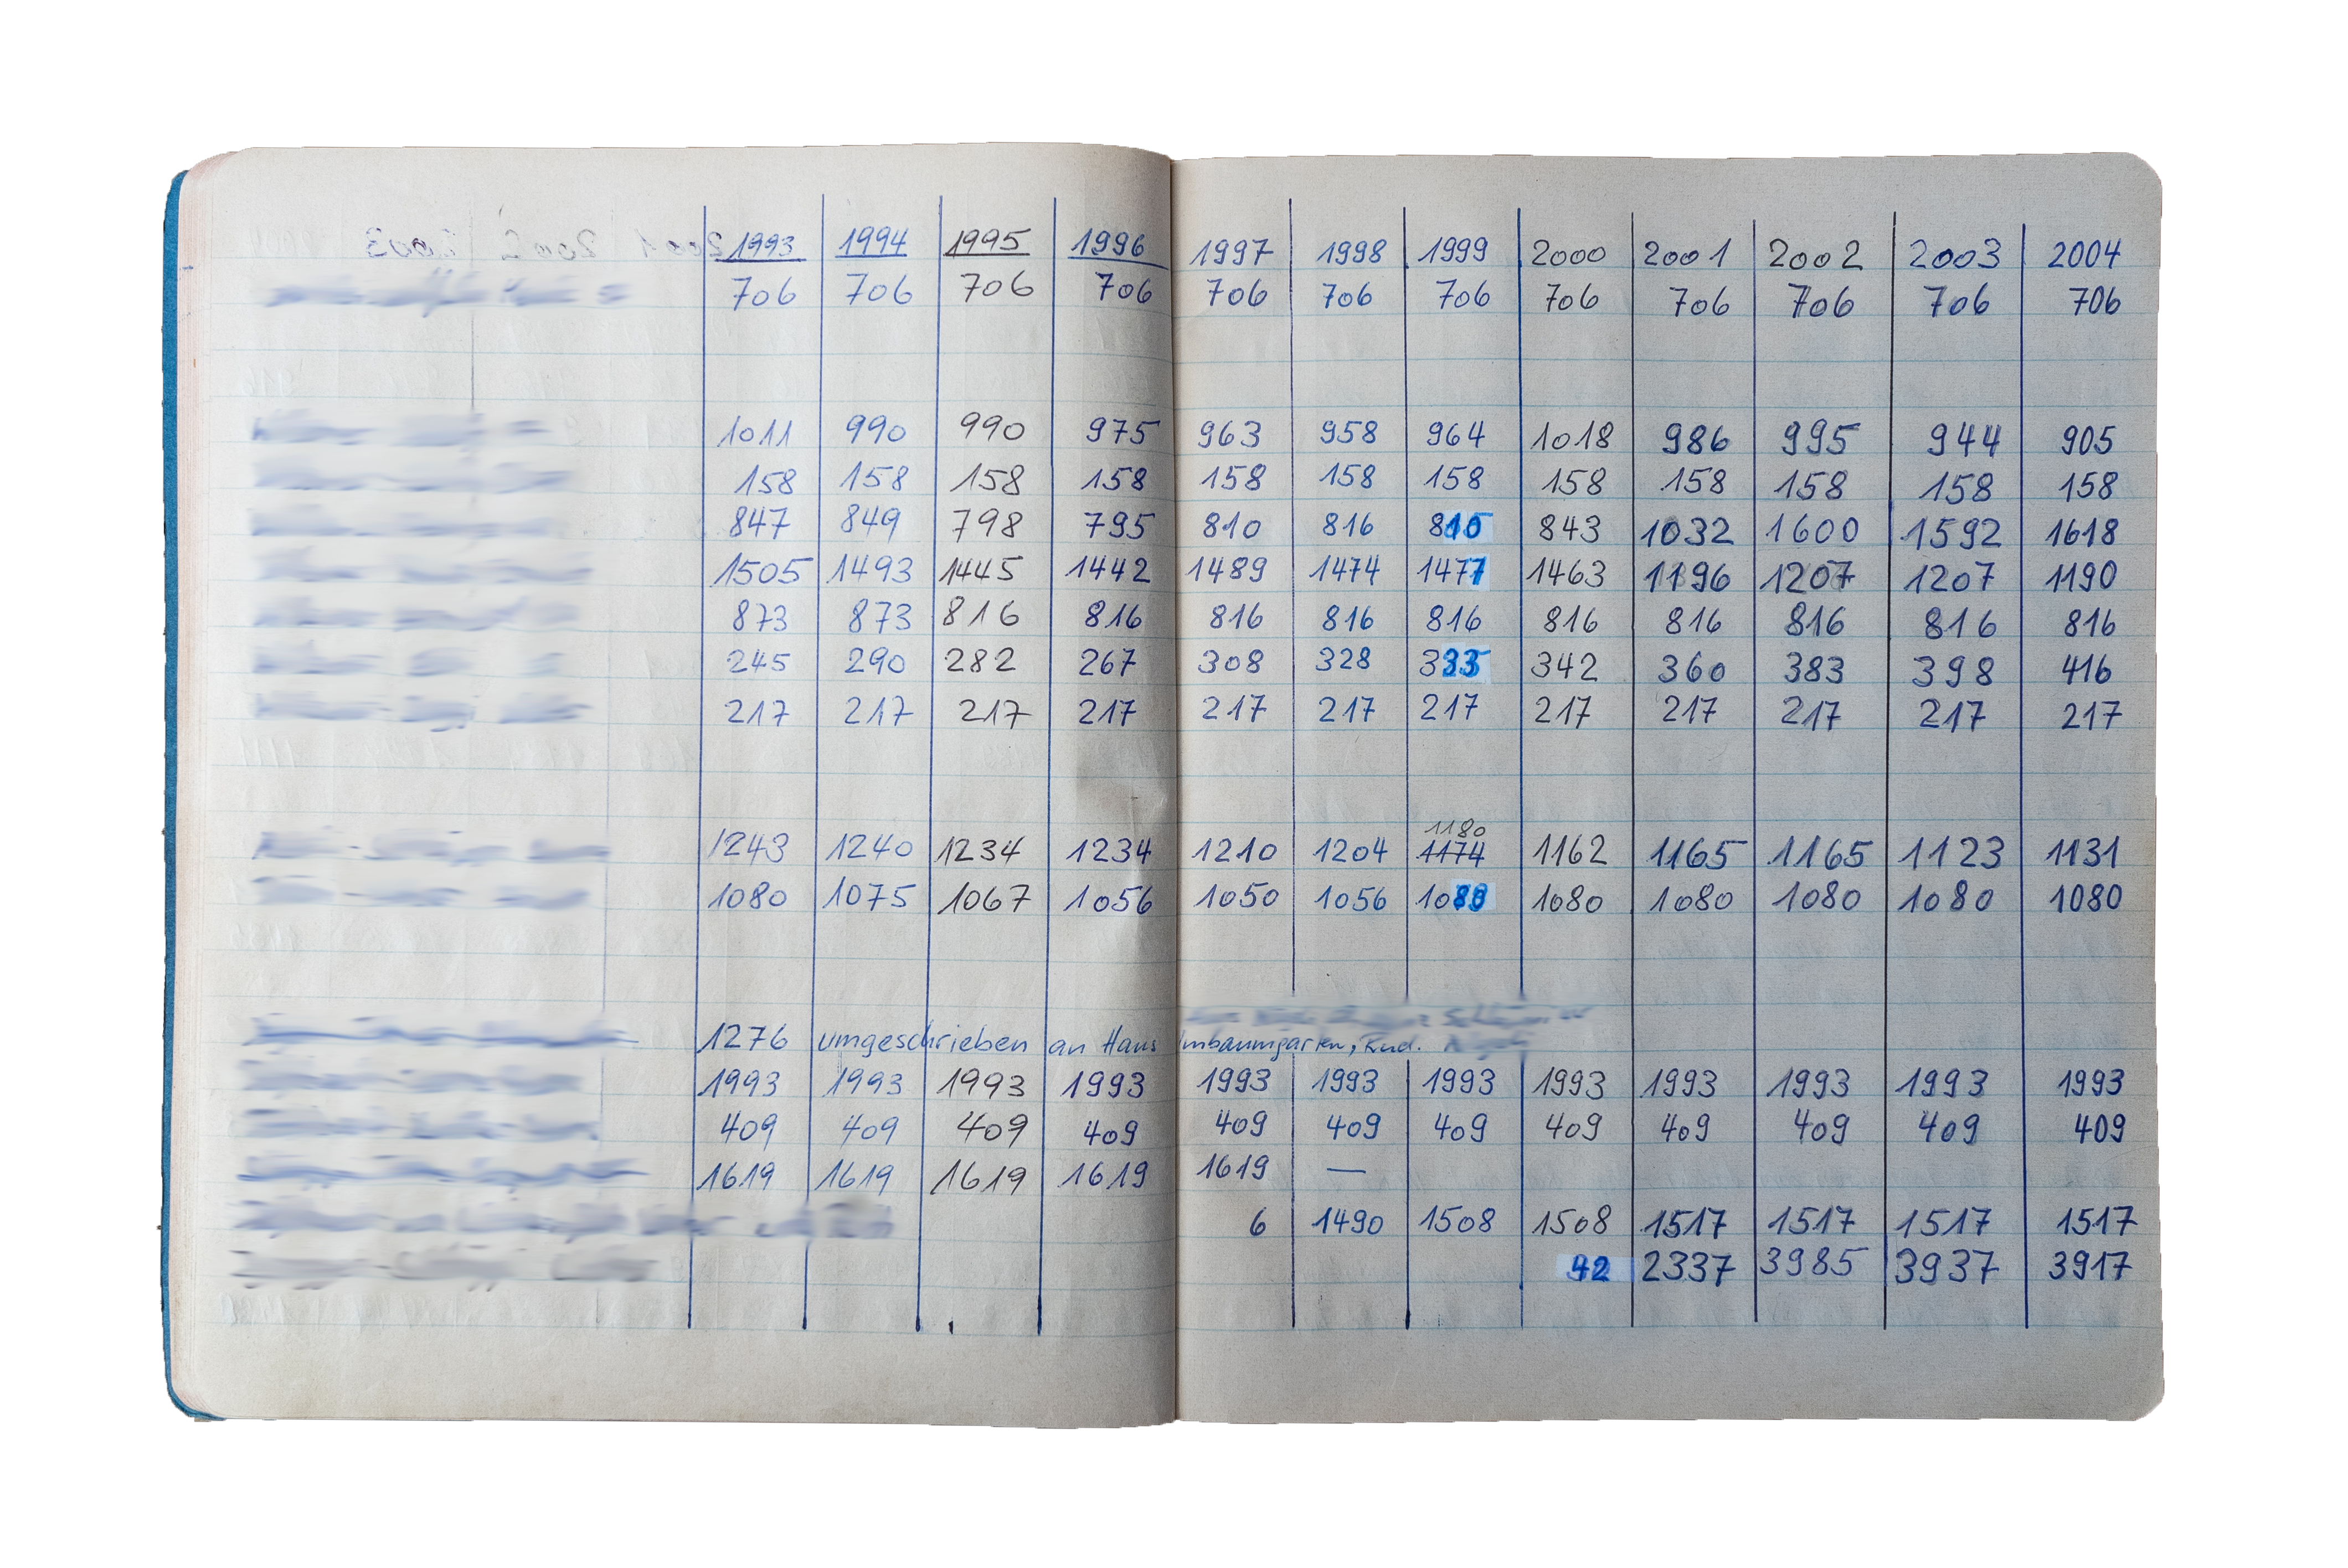 1993 1994 1995 1996 1997 1998 1999 2000 2001 2002 2003 2004
706 706 706 706 706 706 706 706 706 706 706 706
1011 990 990 975 963 958 964 1018 986 995 944 905
158 158 158 158 158 158 158 158 158 158 158 158
847 849 798 795 810 816 810 843 1032 1600 1592 1618
1505 1493 1445 1442 1489 1474 1477 1463 1196 1207 1207 1190
873 873 816 816 816 816 816 816 816 816 816 816
245 290 282 267 308 328 342 360 383 398 416
217 217 217 217 217 217 217 217 217 217 217 217
1180
1243 1240 1234 1234 1210 1204 1174 1162 1165 1165 1123 1131
1080 1075 1067 1056 1050 1056 1080 1080 1080 1080 1080
1276 umgeschrieben an Hans
1993 1993 1993 1993 1993 1993 1993 1993 1993 1993 1993 1993
409 409 409 409 409 409 409 409 409 409 409 409
1619 1619 1619 1619 1619 —
6 1490 1508 1508 1517 1517 1517 1517
42 2337 3985 3937 3917